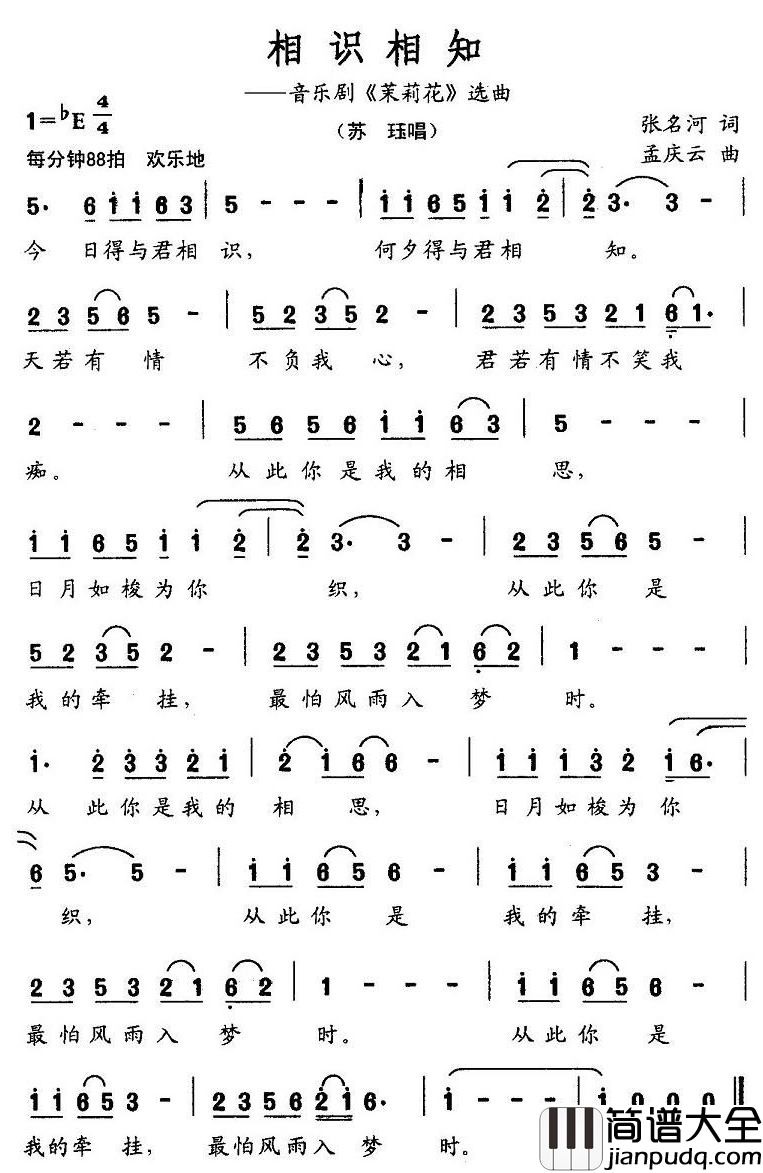 相识相知
——音乐剧《茉莉花》选曲
1=♭E 4/4
（苏 珏唱）
张名河 词
每分钟88拍 欢乐地
孟庆云 曲
5· 6 1 1 6 3 | 5 - - - | 1 1 6 5 1 1 2 | 2 3· 3 - |
今 日得与君相 识， 何夕得与君相 知。
2 3 5 6 5 - | 5 2 3 5 2 - | 2 3 5 3 2 1 6 1· |
天若有 情 不负我 心， 君若有情不笑我
2 - - - | 5 6 5 6 1 1 6 3 | 5 - - - |
痴。 从此你是我的相 思，
1 1 6 5 1 1 2 | 2 3· 3 - | 2 3 5 6 5 - |
日月如梭为你 织， 从此你 是
5 2 3 5 2 - | 2 3 5 3 2 1 6 2 | 1 - - - |
我的牵 挂， 最怕风雨入 梦 时。
1· 2 3 3 2 1 | 2 1 6 6 - | 1 1 1 3 2 1 6· |
从 此你是我的 相 思， 日月如梭为你
6 5· 5 - | 1 1 6 5 6 - | 1 1 6 5 3 - |
织， 从此你 是 我的牵 挂，
2 3 5 3 2 1 6 2 | 1 - - - | 1 1 6 5 6 - |
最怕风雨入 梦 时。 从此你 是
1 1 6 5 3 - | 2 3 5 6 2 1 6· | 1 - - - | 1 0 0 0 ‖
我的牵 挂， 最怕风雨入 梦 时。
简谱大全
jianpudq.com